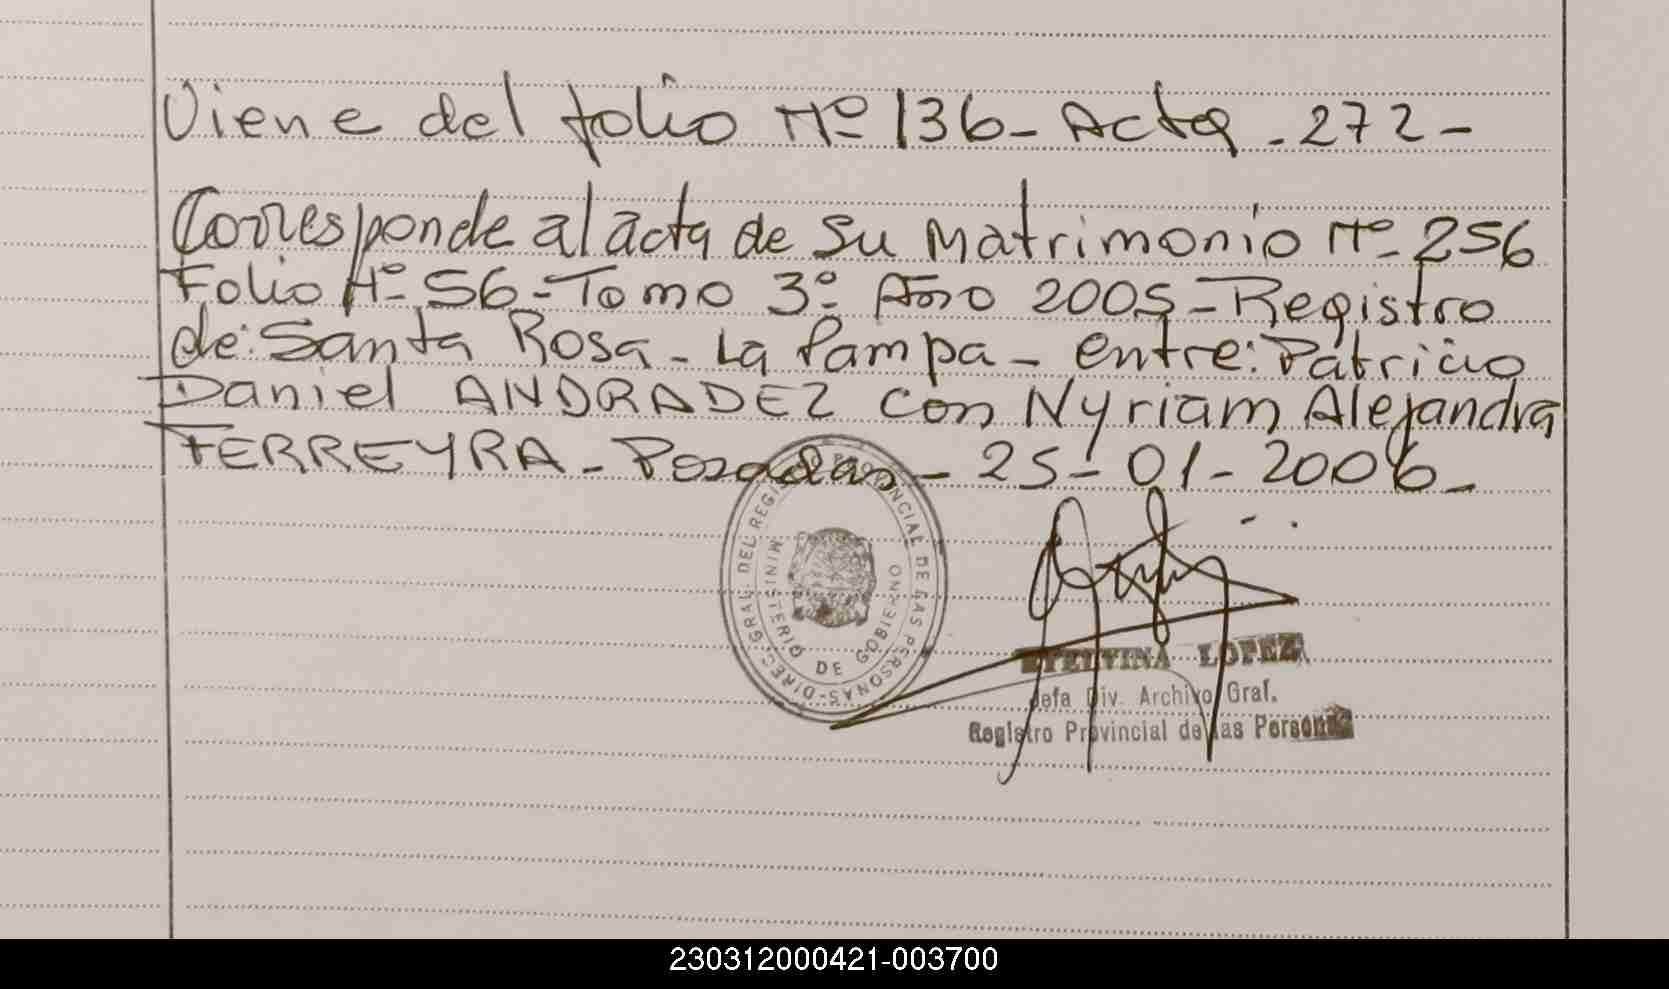 Viene del folio Nº 136- Acta - 272 -
Corresponde al acta de su Matrimonio Nº 256
Folio Nº 56 - Tomo 3º Año 2005 - Registro
de: Santa Rosa - La Pampa - entre: Patricio
Daniel ANDRADEZ con Nyriam Alejandra
FERREYRA - Posadas - 25-01-2006 -
DIREC. GRAL. DEL REGISTRO PROVINCIAL DE LAS PERSONAS -
MINISTERIO DE GOBIERNO
LOPEZ
Jefa Div. Archivo Gral.
Registro Provincial de las Personas
230312000421-003700